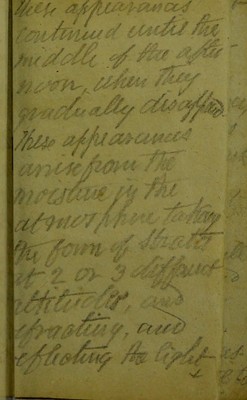 these appearances
continued until the
middle of the after
noon, when they
gradually disapprd.
These appearances
arise from the
moisture in the
atmosphere taking
the form of strata
at 2 or 3 different
altitudes, and
refracting, and
reflecting the light